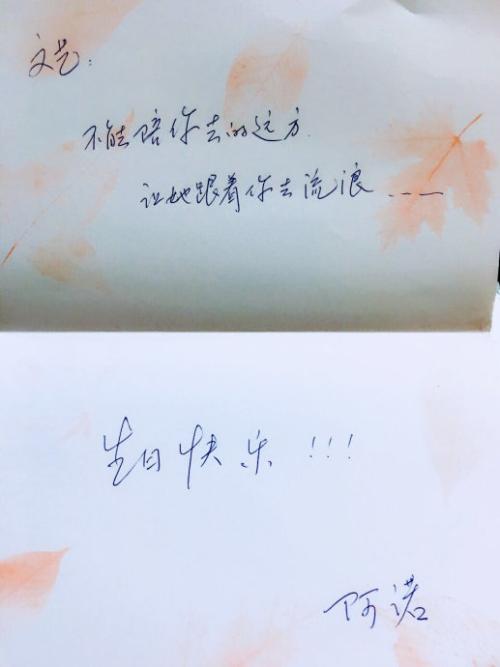 文艺：
不能陪你去的远方
让她跟着你去流浪……
生日快乐!!!
阿诺